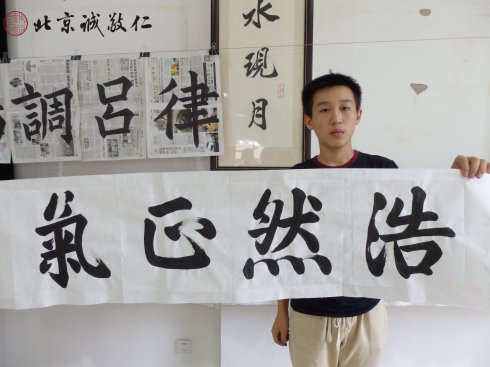 北京诚敬仁
水現月
律呂調
浩然正氣